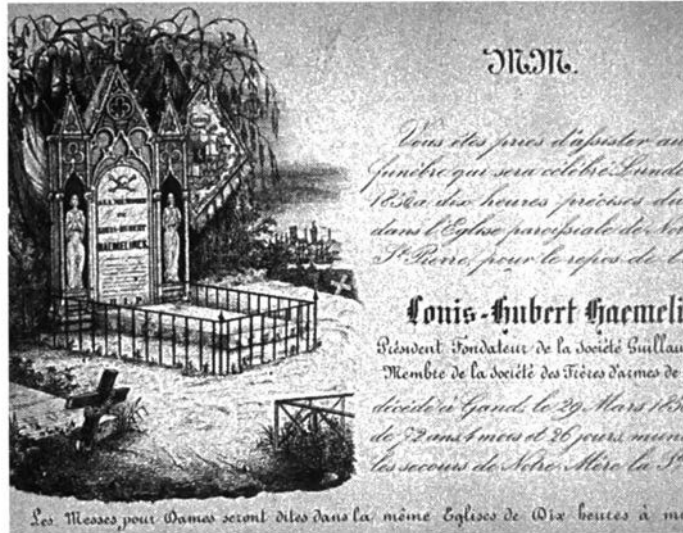 MM.
Vous êtes priés d'assister au
funèbre qui sera célébré Lund
à dix heures précises du
dans l'Eglise paroissiale de
St Pierre, pour le repos de l
Louis-Hubert Haemeli
Président Fondateur de la Société Guillau
Membre de la Société des Frères d'armes de
décédé à Gand, le 29 Mars
de 72 ans 4 mois et 26 jours, muni
les secours de Notre Mère la
Les Messes pour Dames seront dites dans la même Eglises de Dix heures à
LOUIS-HUBERT
HAEMELINCK